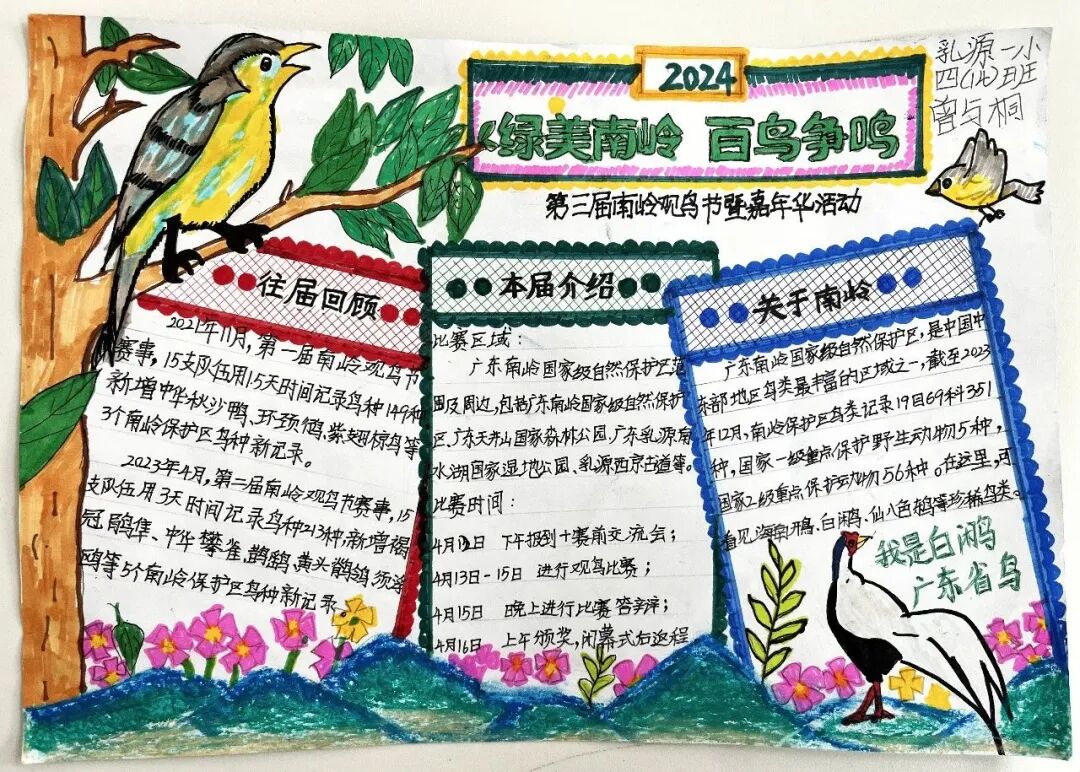 2024
绿美南岭 百鸟争鸣
第三届南岭观鸟节暨嘉年华活动
乳源一小
四(1)班
曾与桐
往届回顾
2021年11月,第一届南岭观鸟节
赛事,15支队伍用15天时间记录鸟种149种
新增中华秋沙鸭、环颈鸻、紫翅椋鸟等
3个南岭保护区鸟种新记录。
2023年4月,第二届南岭观鸟节赛事,15
支队伍用3天时间记录鸟种213种,新增褐
冠鹃隼、中华攀雀、鹊鹞、黄头鹡鸰、须浮
鸥等5个南岭保护区鸟种新记录
本届介绍
比赛区域:
广东南岭国家级自然保护区范
围及周边,包括广东南岭国家级自然保护
区、广东天井山国家森林公园、广东乳源南
水湖国家湿地公园、乳源西京古道等。
比赛时间:
4月12日 下午报到+赛前交流会;
4月13日-15日 进行观鸟比赛;
4月15日 晚上进行比赛答辩;
4月16日 上午颁奖,闭幕式后返程
关于南岭
广东南岭国家级自然保护区,是中国中
东部地区鸟类最丰富的区域之一,截至2023
年12月,南岭保护区鸟类记录19目69科351
种,国家一级重点保护野生动物5种,
国家2级重点保护动物56种。在这里,可
看见海南鳽、白鹇、仙八色鸫等珍稀鸟类。
我是白鹇
广东省鸟